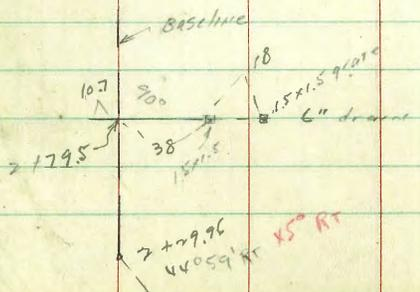 Baseline
18
10.7 90° 1.5x1.5 grate
6" drain
2+79.5 38 1.5x1.5
2+29.96
44°59' RT 45° RT